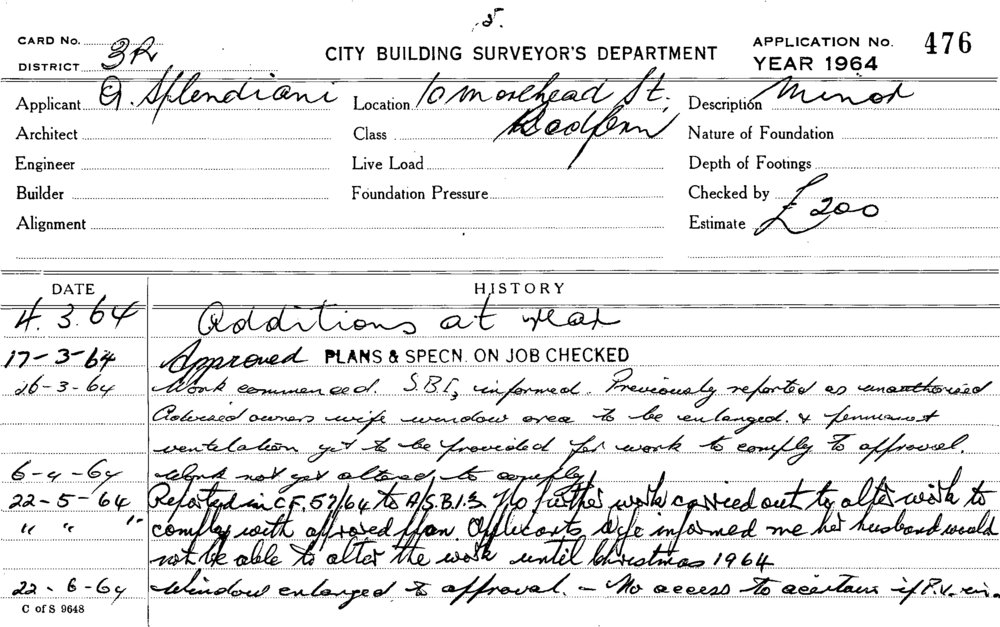 5.
CARD No.
DISTRICT 3R
CITY BUILDING SURVEYOR'S DEPARTMENT
APPLICATION No. 476
YEAR 1964
Applicant G. Splendiani Location 10 Morehead St, Description Minor
Architect Class Redfern Nature of Foundation
Engineer Live Load Depth of Footings
Builder Foundation Pressure Checked by
Alignment Estimate £200
DATE HISTORY
4.3.64 Additions at rear
17-3-64 Approved PLANS & SPECN. ON JOB CHECKED
26-3-64 Work commenced. S.B.I. informed. Previously reported as unauthorised
Advised owners wife window area to be enlarged. & permanent
ventilation yet to be provided for work to comply to approval.
6-4-64 Work not yet altered to comply
22-5-64 Reported in CF. 57/64 to A/S.B.I. No further work carried out to alter work to
" " " comply with approved plan. Applicants wife informed me her husband would
not be able to alter the work until Christmas 1964
22-6-64 Window enlarged to approval. - No access to acertain if P.V. in.
C of S 9648